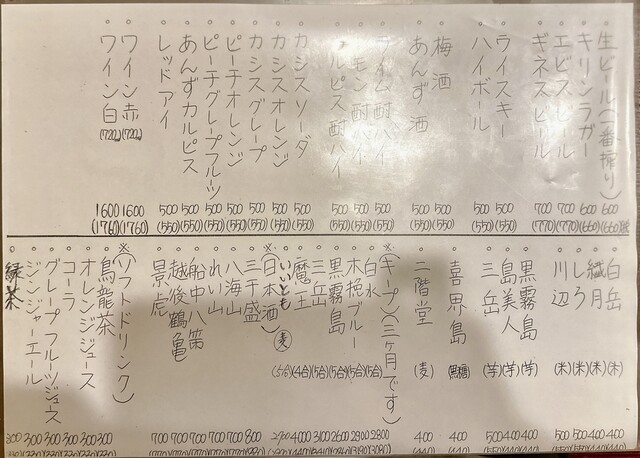 生ビール(一番搾り) 600 (660)
キリンラガー 600 (660)
エビスビール 700 (770)
ギネスビール 700 (770)
ウイスキー 500 (550)
ハイボール 500 (550)
梅酒 500 (550)
あんず酒 500 (550)
ライム酎ハイ 500 (550)
レモン酎ハイ 500 (550)
カルピス酎ハイ 500 (550)
カシスソーダ 500 (550)
カシスオレンジ 500 (550)
カシスグレープ 500 (550)
ピーチオレンジ 500 (550)
ピーチグレープフルーツ 500 (550)
あんずカルピス 500 (550)
レッドアイ 500 (550)
ワイン赤(720) 1600 (1760)
ワイン白(720) 1600 (1760)
白岳 (米) 400
繊月 (米) 400
しろ (米) 500
川辺 (米) 500
黒霧島 (芋) 400
島美人 (芋) 400
三岳 (芋) 500
喜界島 (黒糖) 400
二階堂 (麦) 400
※(キープ)(三ヶ月です)
白水 (5合) 2800
木挽ブルー (5合) 2900
黒霧島 (5合) 2600
三岳 (5合) 3100
魔王 (4合) 4000
いいとも(麦) (5合)
※(日本酒)
三千盛 800
八海山 700
れい山 700
船中八策 700
越後鶴亀 700
景虎 700
※(ソフトドリンク)
烏龍茶 300
オレンジジュース 300
コーラ 300
グレープフルーツジュース 300
ジンジャーエール 300
緑茶 300